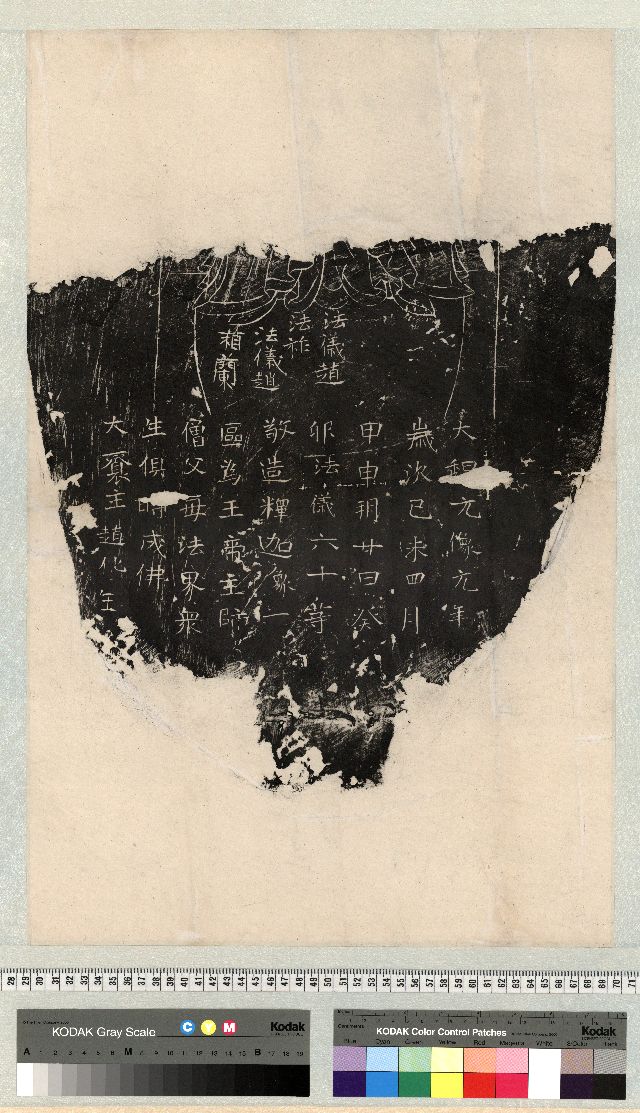 法儀趙
法祚
法儀趙
相蘭
大魏元像元年
歲次己未四月
甲申朔廿日癸
卯法儀六十等
敬造釋迦像一
區為王帝主師
僧父母法界眾
生俱時成佛
大齋主趙化主
28 29 30 31 32 33 34 35 36 37 38 39 40 41 42 43 44 45 46 47 48 49 50 51 52 53 54 55 56 57 58 59 60 61 62 63 64 65 66 67 68 69 70 71
KODAK Gray Scale C Y M Kodak
A 1 2 3 4 5 6 M 7 8 9 10 11 12 13 14 15 B 16 17 18 19
KODAK Color Control Patches Kodak
Blue Cyan Green Yellow Red Magenta White 3/Color Black